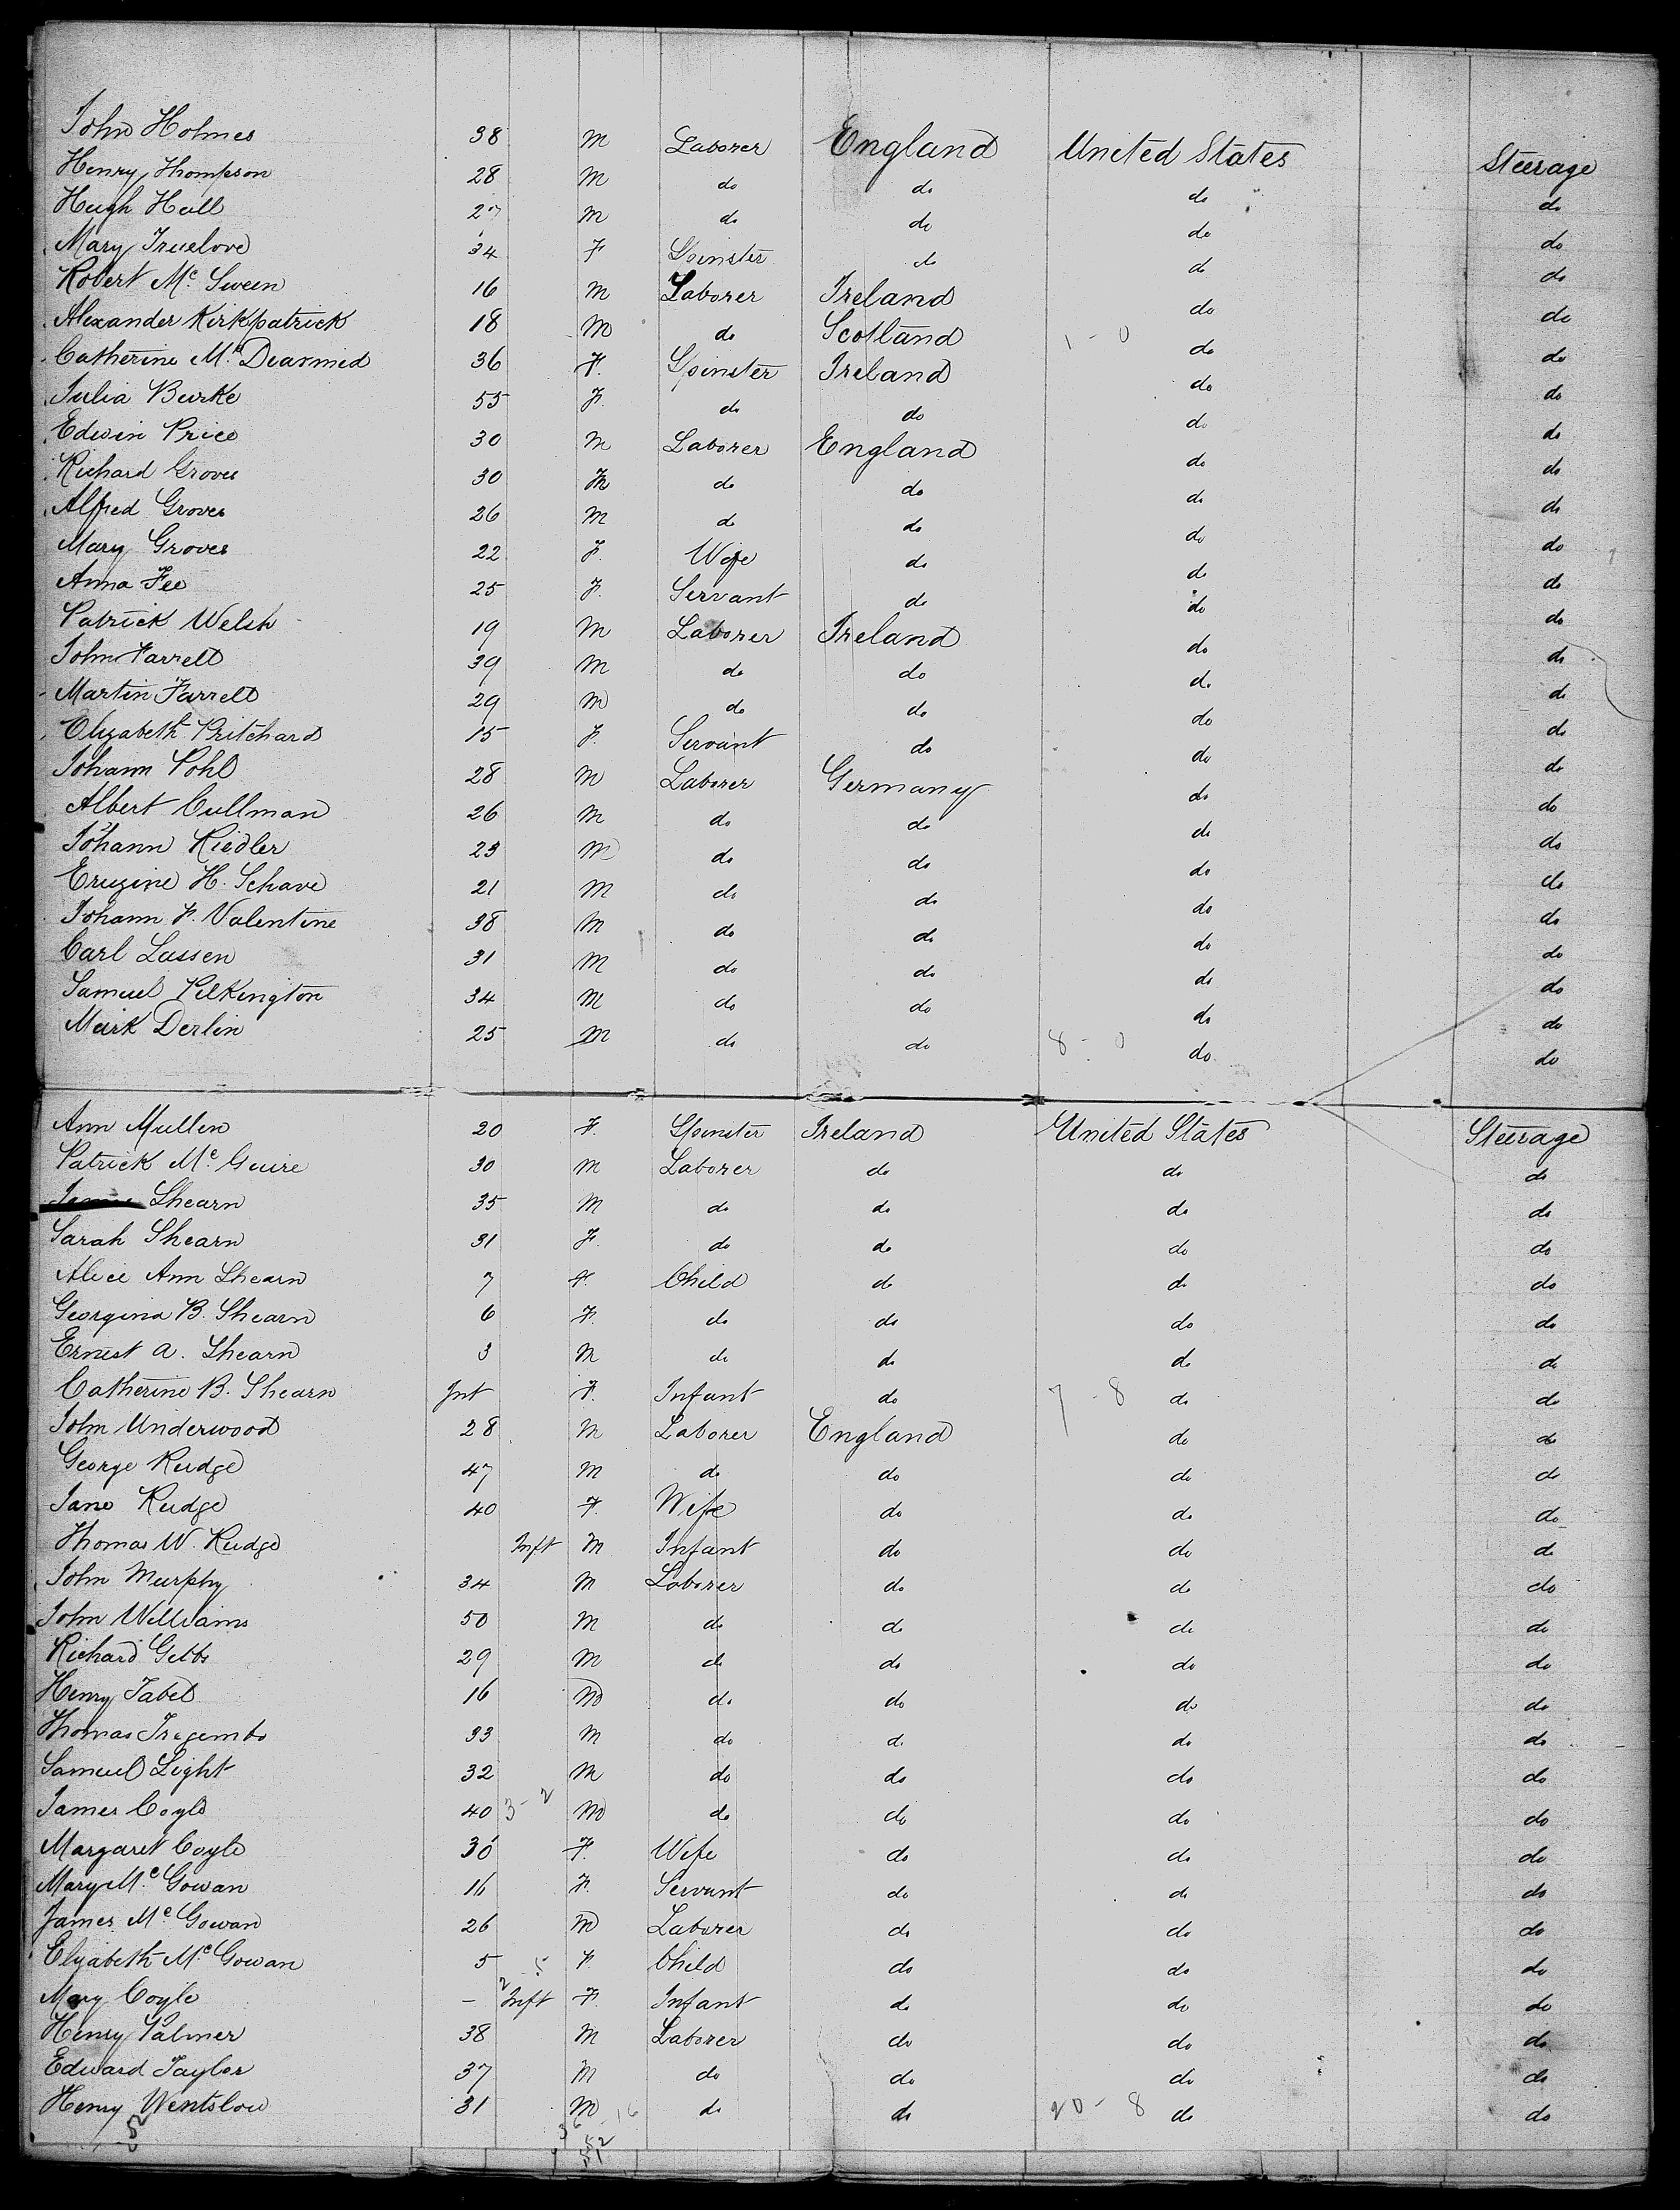 John Holmes 38 M Laborer England United States Steerage
Henry Thompson 28 M do do do do
Hugh Hall 27 M do do do do
Mary Truelove 34 F Spinster do do do
Robert Mc Sween 16 M Laborer Ireland do do
Alexander Kirkpatrick 18 M do Scotland 1 - 0 do do
Catherine Mc Dearmid 36 F. Spinster Ireland do do
Julia Burke 55 F. do do do do
Edwin Price 30 M Laborer England do do
Richard Groves 30 M do do do do
Alfred Groves 26 M do do do do
Mary Groves 22 F. Wife do do do
Anna Fee 25 F. Servant do do do
Patrick Welsh 19 M Laborer Ireland do do
John Farrell 39 M do do do do
Martin Farrell 29 M do do do do
Elizabeth Pritchard 15 F. Servant do do do
Johann Pohl 28 M Laborer Germany do do
Albert Cullman 26 M do do do do
Johann Riedler 23 M do do do do
Eruzine H. Schave 21 M do do do do
Johann F. Valentine 38 M do do do do
Carl Lassen 31 M do do do do
Samuel Pilkington 34 M do do do do
Mark Derlin 25 M do do 8 - 0 do do
Ann Mullen 20 F. Spinster Ireland United States Steerage
Patrick Mc Guire 30 M Laborer do do do
Shearn 35 M do do do do
Sarah Shearn 31 F. do do do do
Alice Ann Shearn 7 F. Child do do do
Georgina B. Shearn 6 F. do do do do
Ernest A. Shearn 3 M do do do do
Catherine B. Shearn Inf F. Infant do 7 - 8 do do
John Underwood 28 M Laborer England do do
George Rudge 47 M do do do do
Jane Rudge 40 F. Wife do do do
Thomas W. Rudge Inft M Infant do do do
John Murphy 34 M Laborer do do do
John Williams 50 M do do do do
Richard Gibbs 29 M do do do do
Henry Tabel 16 M do do do do
Thomas Tregembo 33 M do do do do
Samuel Light 32 M do do do do
James Coyle 40 3 - 2 M do do do do
Margaret Coyle 30 F. Wife do do do
Mary Mc Gowan 16 F. Servant do do do
James Mc Gowan 26 M Laborer do do do
Elizabeth Mc Gowan 5 F. Child do do do
Mary Coyle - Inft F. Infant do do do
Henry Palmer 38 M Laborer do do do
Edward Taylor 37 M do do do do
Henry Wentslow 31 M do do 20 - 8 do do